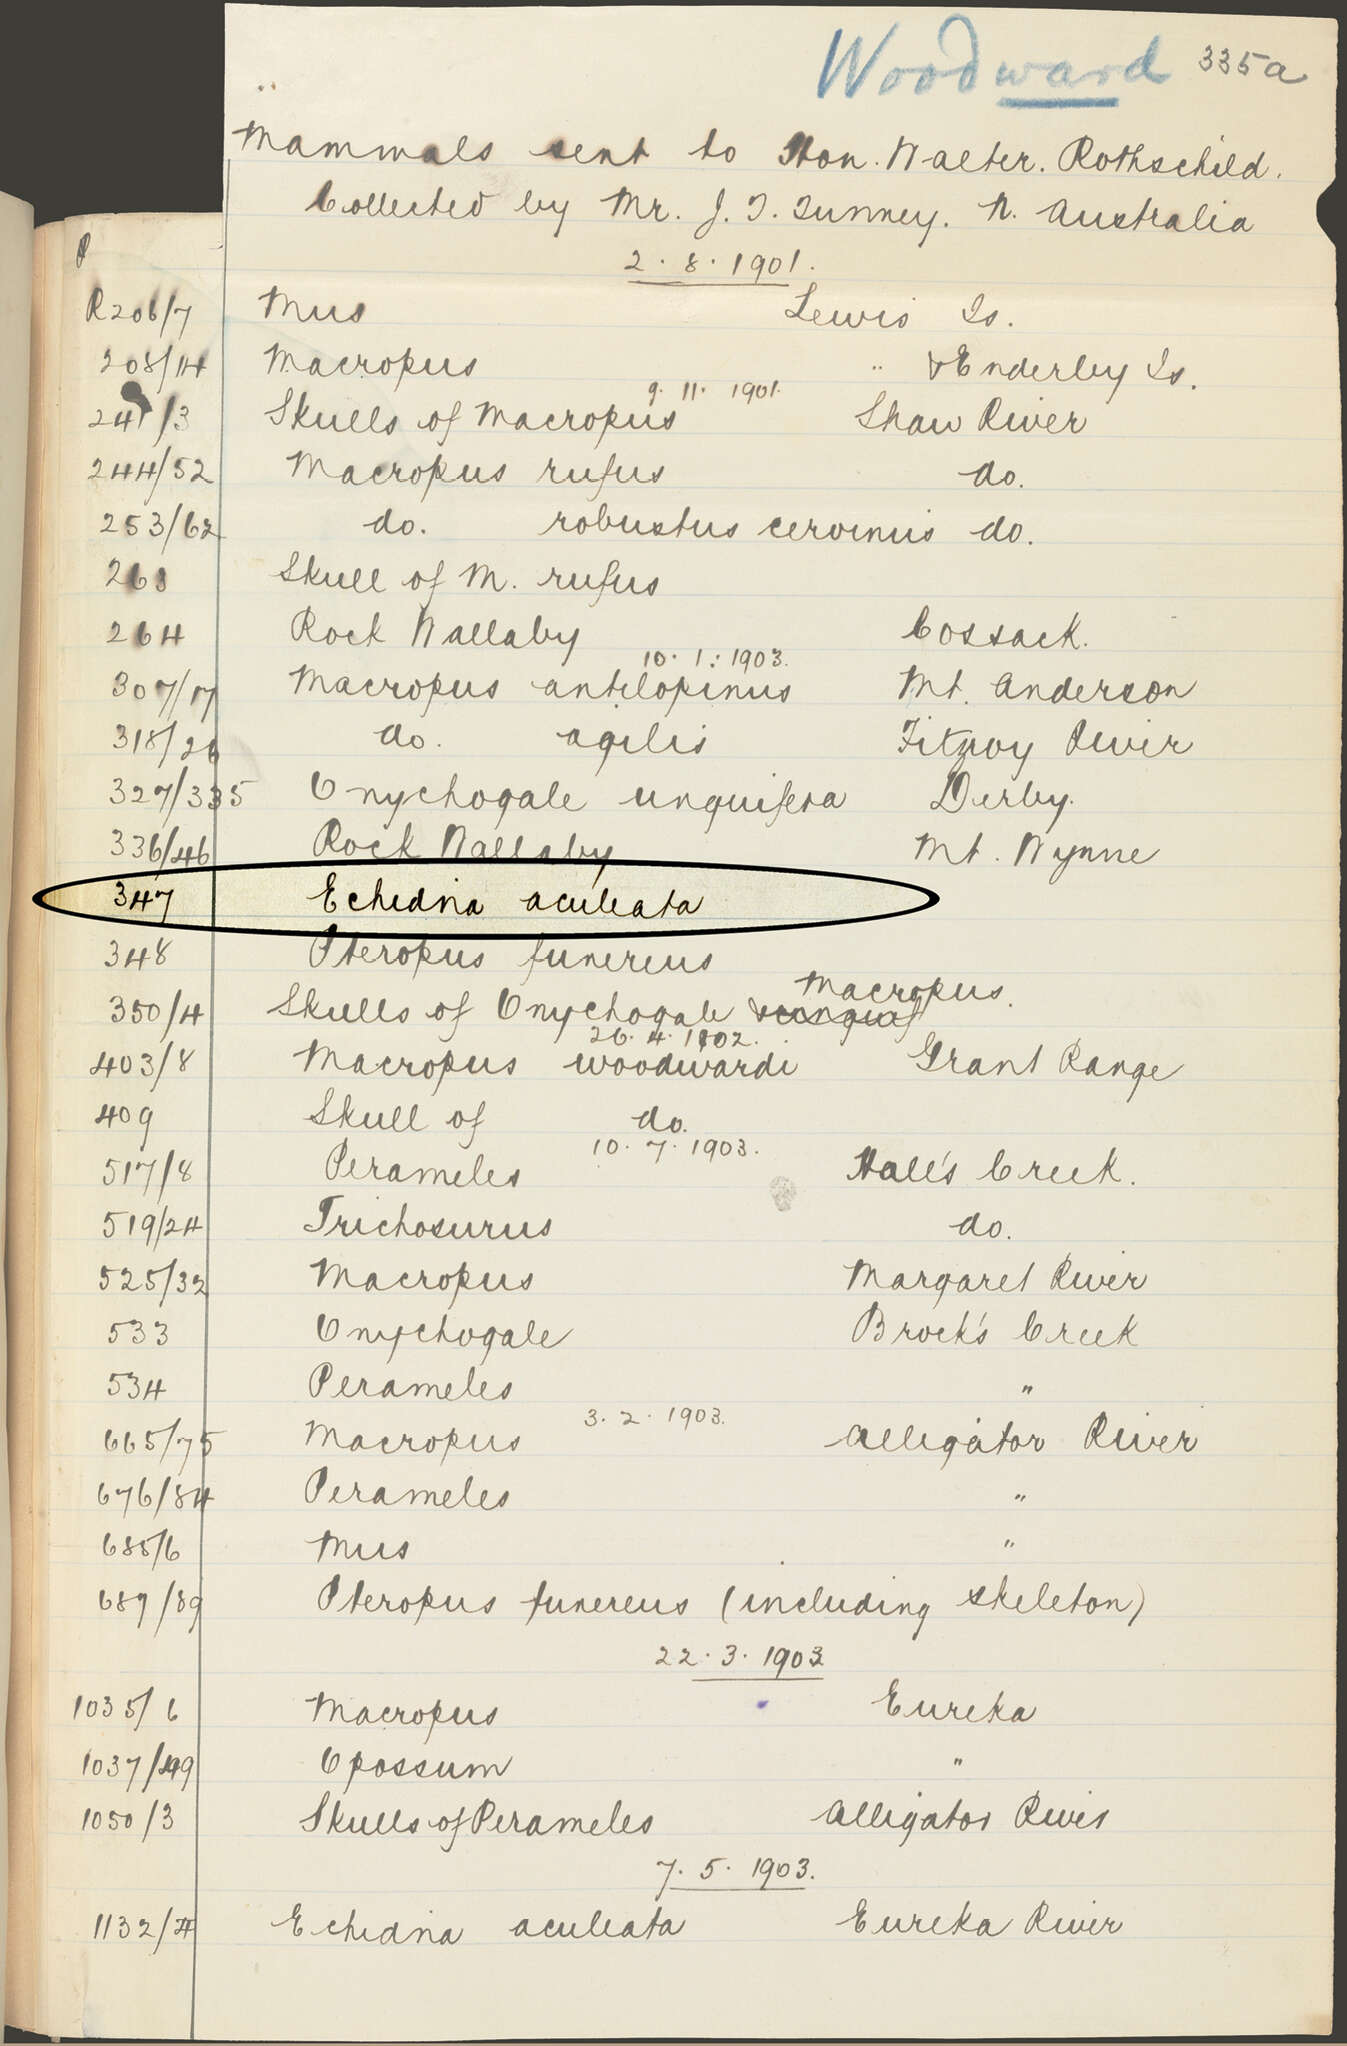 Woodward 335a
Mammals sent to Hon. Walter. Rothschild.
Collected by Mr. J. T. Tunney. N. Australia
2. 8. 1901.
R206/7 Mus Lewis Is.
208/14 Macropus " & Enderby Is.
9. 11. 1901.
241/3 Skulls of Macropus Shaw River
244/52 Macropus rufus do.
253/62 do. robustus cervinus do.
263 Skull of M. rufus
264 Rock Wallaby Cossack.
10. 1. 1903.
307/17 Macropus antilopinus Mt. Anderson
318/26 do. agilis Fitzroy River
327/335 Onychogale unguifera Derby.
336/46 Rock Wallaby Mt. Wynne
347 Echidna aculeata
348 Pteropus funereus
Macropus.
350/4 Skulls of Onychogale &
26. 4. 1902.
403/8 Macropus woodwardi Grant Range
409 Skull of do.
10. 7. 1903.
517/8 Perameles Hall's Creek.
519/24 Trichosurus do.
525/32 Macropus Margaret River
533 Onychogale Brock's Creek
534 Perameles "
3. 2. 1903.
665/75 Macropus Alligator River
676/84 Perameles "
685/6 Mus "
687/89 Pteropus funereus (including skeleton)
22. 3. 1903
1035/6 Macropus Eureka
1037/49 Opossum "
1050/3 Skulls of Perameles Alligator River
7. 5. 1903.
1132/4 Echidna aculeata Eureka River